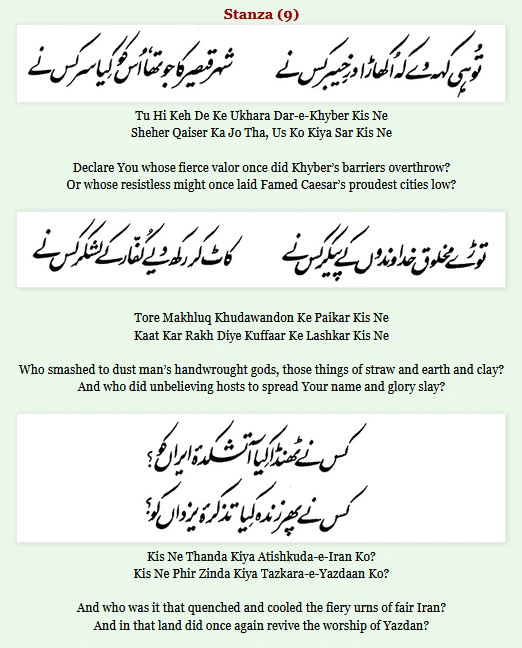 Stanza (9)
تُو ہی کہہ دے کہ اُکھاڑا درِ خیبر کس نے
شہر قیصر کا جو تھا، اُس کو کیا سر کس نے
Tu Hi Keh De Ke Ukhara Dar-e-Khyber Kis Ne
Sheher Qaiser Ka Jo Tha, Us Ko Kiya Sar Kis Ne
Declare You whose fierce valor once did Khyber’s barriers overthrow?
Or whose resistless might once laid Famed Caesar’s proudest cities low?
توڑے مخلوق خداوندوں کے پیکر کس نے
کاٹ کر رکھ دیے کُفّار کے لشکر کس نے
Tore Makhluq Khudawandon Ke Paikar Kis Ne
Kaat Kar Rakh Diye Kuffaar Ke Lashkar Kis Ne
Who smashed to dust man’s handwrought gods, those things of straw and earth and clay?
And who did unbelieving hosts to spread Your name and glory slay?
کس نے ٹھنڈا کیا آتشکدۂ ایراں کو؟
کس نے پھر زندہ کیا تذکرۂ یزداں کو؟
Kis Ne Thanda Kiya Atishkuda-e-Iran Ko?
Kis Ne Phir Zinda Kiya Tazkara-e-Yazdaan Ko?
And who was it that quenched and cooled the fiery urns of fair Iran?
And in that land did once again revive the worship of Yazdan?